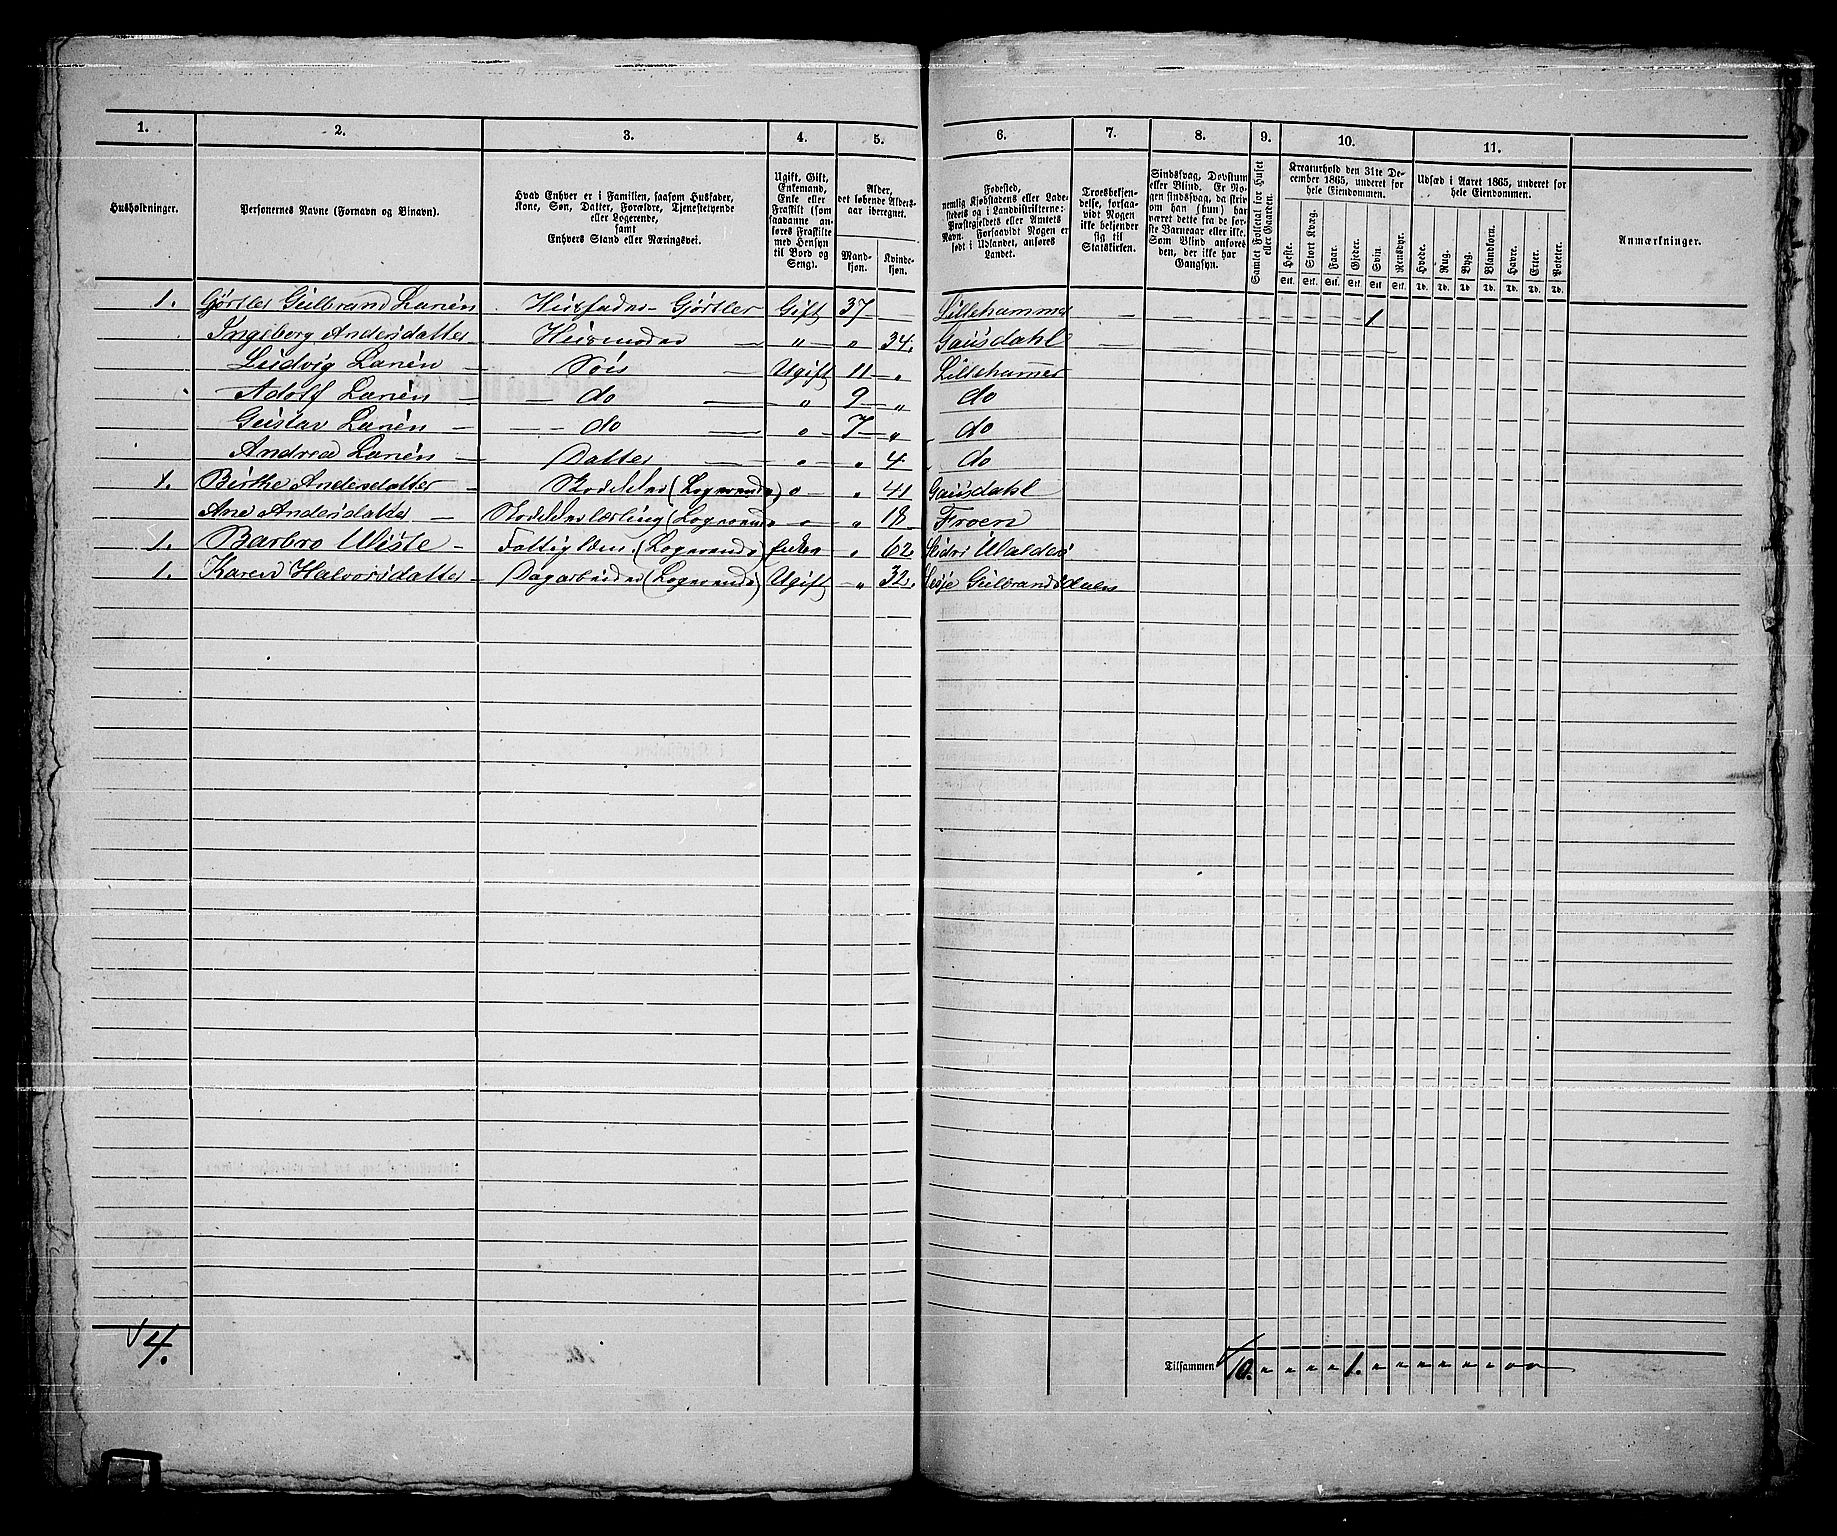 1. 2. 3. 4. 5. 6. 7. 8. 9. 10. 11.
Husholdninger.
Personernes Navne (Fornavn og Binavn).
Hvad Enhver er i Familien, saasom Husfader,
Kone, Søn, Datter, Forældre, Tjenestetyende
eller Logerende,
samt
Enhvers Stand eller Næringsvei.
Ugift, Gift,
Enkemand,
Enke eller
Fraskilt (som
saadanne an-
føres Fraskilte
med Hensyn
til Bord og
Seng).
Alder,
det løbende Alders-
aar iberegnet.
Mand-
kjøn.
Kvinde-
kjøn.
Fødested,
nemlig Kjøbstadens eller Lade-
stedets og i Landdistrikterne:
Præstegjeldets eller Amtets
Navn. Forsaavidt Nogen er
født i Udlandet, anføres
Landet.
Troesbekjen-
delse, forsaa-
vidt Nogen
ikke bekjender
sig til
Statskirken.
Sindssvag, Døvstum
eller Blind. Er No-
gen sindssvag, da skriv
om han (hun) har
været dette fra de før-
ste Barneaar eller ikke.
Som Blind anføres
den, der ikke har
Gangsyn.
Samlet Folketal for Huset
eller Gaarden.
Kreaturhold den 31te De-
cember 1865, underet for
hele Eiendommen.
Heste. Stort Kvæg. Faar. Gjeder. Svin. Rensdyr.
Stk. Stk. Stk. Stk. Stk. Stk.
Udsæd i Aaret 1865, underet for
hele Eiendommen.
Hvede. Rug. Byg. Blandkorn. Havre. Erter. Poteter.
Td. Td. Td. Td. Td. Td. Td.
Anmærkninger.
1. Gjørtler Gulbrand Lanén Husfader - Gjørtler Gift 37 — Lillehammer 1
Ingeborg Andersdatter Husmoder — „ — „ 34. Gausdahl
Ludvig Lanén Søn — Ugift 11 — „ Lillehamer
Adolf Lanén — do — „ 9 — „ do
Gustav Lanén — do — „ 7 — „ do
Andrea Lanén — Datter — „ — „ 4 do
1. Birthe Andersdatter (Logerende) „ — „ 41 Gausdahl
Ane Andersdatter — (Logerende „ — „ 18 Froen
1. Barbro Wiste — (Logerende) Enke „ 62.
1. Karen Halvorsdatter — Dagarbeider (Logerende) Ugift — „ 32. Lesje Gulbrandsdalen
4.
Tilsammen 10. „ „ „ „ 1. „ „ „ „ „ „ „ „